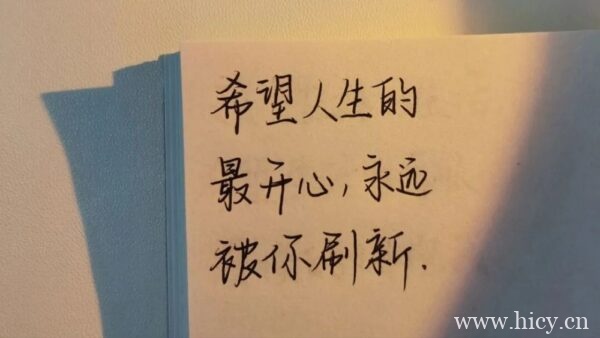 希望人生的
最开心,永远
被你刷新.
www.hicy.cn